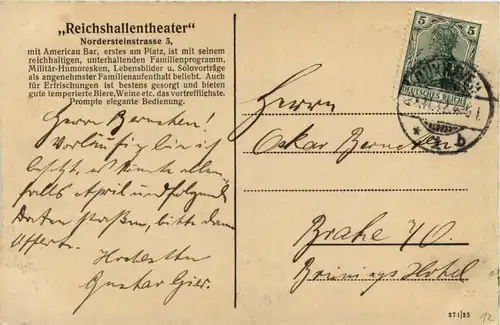 „Reichshallentheater"
Nordersteinstrasse 5,
mit American Bar, erstes am Platz, ist mit seinem
reichhaltigen, unterhaltenden Familienprogramm,
Militär-Humoresken, Lebensbilder u. Solovorträge
als angenehmster Familienaufenthalt beliebt. Auch
für Erfrischungen ist bestens gesorgt und bieten
gute temperierte Biere, Weine etc. das vortrefflichste.
Prompte elegante Bedienung.
Herrn
Vorläufig bin ich
besetzt, es könnte allen-
falls April und folgend
Daten passen, bitte dann
Offerte.
Hochachtend
Gustav
5
DEUTSCHES REICH
* b
Herrn
Oskar
Brake i/O.
Hotel
271/25
12